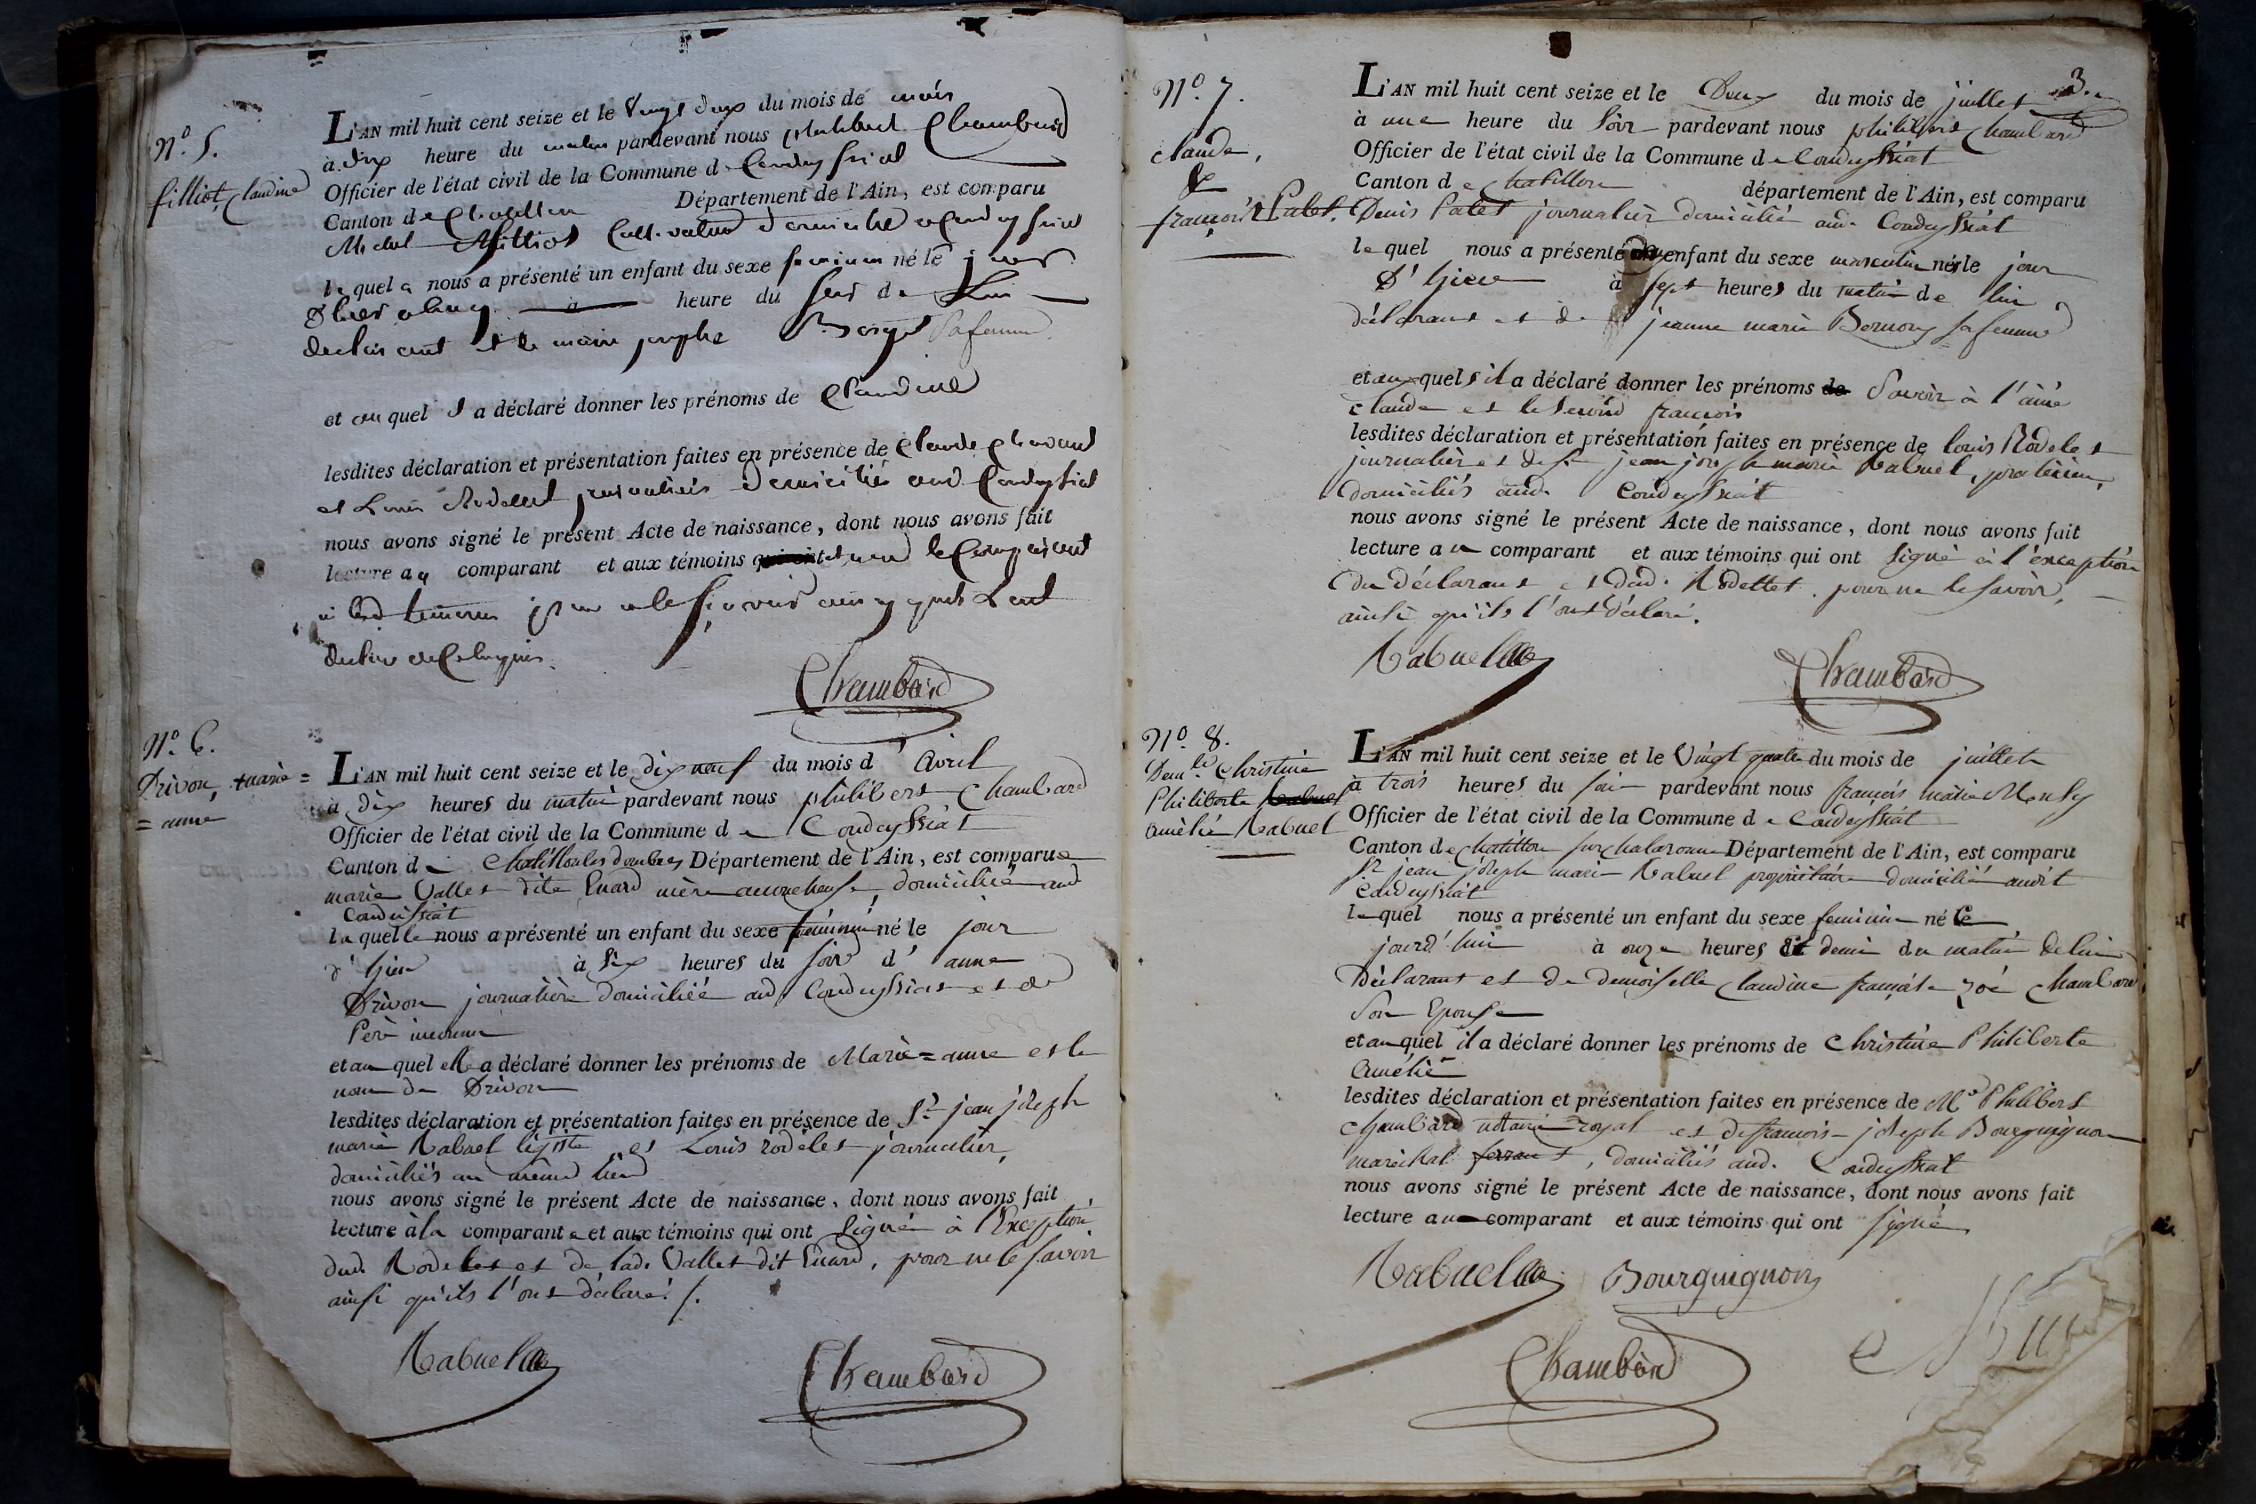 N.o 5.
filliot, Claudine
L'AN mil huit cent seize et le Vingt deux du mois de mars
à dix heure du matin pardevant nous philibert Chambard
Officier de l'état civil de la Commune de Condeyssiat
Canton de Chatillon Département de l'Ain, est comparu
Michel filliot Cultivateur domicilié a Condeyssiat
lequel a nous a présenté un enfant du sexe feminin né le jour
d'hier à heure du soir de Lui
declarant et de marie josephe Borget sa femme
et au quel il a déclaré donner les prénoms de Claudine
lesdites déclaration et présentation faites en présence de Claude
et Louis Rodellet journaliers domiciliés aud. Condeyssiat
nous avons signé le présent Acte de naissance, dont nous avons fait
lecture au comparant et aux témoins qui ont et non le Comparant
ni les temoins pour ne le sçavoir ainsy quils L'ont
declaré de ce enquis.
Chambard
N.o 6.
Drivon, marie =
= anne
L'AN mil huit cent seize et le dix neuf du mois d'avril
à dix heures du matin pardevant nous philibert Chambard
Officier de l'état civil de la Commune de Condeyssiat
Canton de Chatillon les dombes Département de l'Ain, est comparue
marie Vallet dite Euard mère accoucheuse, domiciliée aud
Condeissiat
laquelle nous a présenté un enfant du sexe féminin né le jour
d'hier à six heures du soir d'anne
Drivon journalière domiciliée aud. Condeyssiat et de
Père inconnu
et au quel elle a déclaré donner les prénoms de Marie = anne et le
nom de Drivon
lesdites déclaration et présentation faites en présence de Sr. jean joseph
marie Rabuel légiste et Louis rodelet journalier,
domiciliés au même lieu
nous avons signé le présent Acte de naissance, dont nous avons fait
lecture à la comparante et aux témoins qui ont Signé à l'Exception
dud. Rodelet et de lad. Vallet dit Euard, pour ne le savoir
ainsi qu'ils l'ont déclaré /.
Rabuel
Chambard
3
N.o 7.
claude,
&
françois Palet.
L'AN mil huit cent seize et le Deux du mois de juillet
à une heure du Soir pardevant nous philibert Chambard
Officier de l'état civil de la Commune de Condeyssiat
Canton de Chatillon département de l'Ain, est comparu
Denis Palet journalier domicilié aud. Condeyssiat
lequel nous a présenté enfant du sexe masculin nés le jour
d'hier à sept heures du matin de lui
déclarant et de jeanne marie Bernon sa femme
et auxquels il a déclaré donner les prénoms de Savoir à l'aîné
claude et le second françois
lesdites déclaration et présentation faites en présence de louis Rodelet
journalier et de Sr. jean joseph marie Rabuel, praticien,
domiciliés aud. Condeyssiat
nous avons signé le présent Acte de naissance, dont nous avons fait
lecture au comparant et aux témoins qui ont signé à l'exception
du déclarant et dud. Rodellet pour ne le savoir,
ainsi qu'ils l'ont déclaré.
Rabuel
Chambard
N.o 8.
Dem.lle Christine
Philiberte Rabuel
amélie Rabuel
L'AN mil huit cent seize et le Vingt quatre du mois de juillet
à trois heures du soir pardevant nous françois marie
Officier de l'état civil de la Commune de Condeyssiat
Canton de Chatillon sur chalaronne Département de l'Ain, est comparu
Sr. jean joseph marie Rabuel propriétaire domicilié audit
Condeyssiat
lequel nous a présenté un enfant du sexe feminin né le
jourd'hui à onze heures et demi du matin de lui
Déclarant et de demoiselle claudine françoise zoé Chambard
Son Epouse
et au quel il a déclaré donner les prénoms de Christine Philiberte
Amélie
lesdites déclaration et présentation faites en présence de Me Philibert
chambard notaire royal et de françois - joseph Bourguignon
maréchal ferrant, domiciliés aud. Condeyssiat
nous avons signé le présent Acte de naissance, dont nous avons fait
lecture au comparant et aux témoins qui ont signé
Rabuel Bourguignon
Chambard